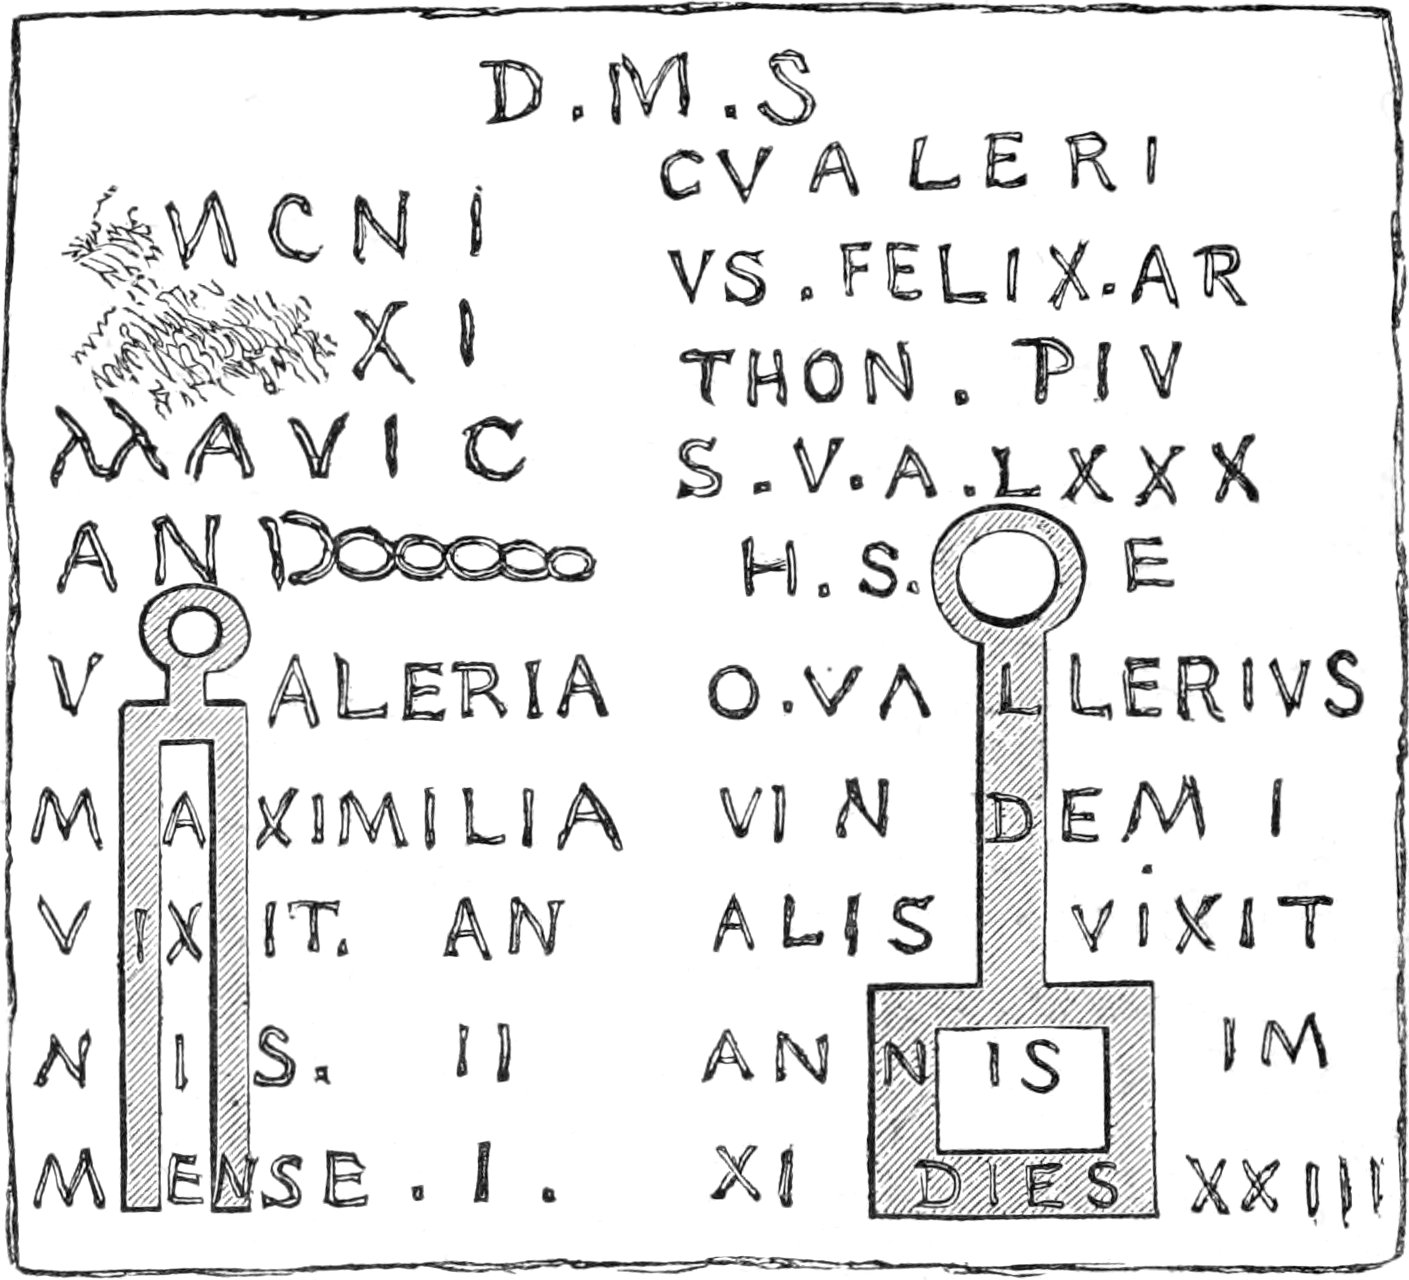 D.M.S
NCNI
XI
MAVIC
AND
VALERIA
MAXIMILIA
VIXIT. AN
NIS. II
MENSE.I.
CVALERI
VS.FELIX.AR
THON. PIV
S.V.A.LXXX
H.S.E
O.VALLERIVS
VINDEMI
ALIS VIXIT
ANNIS IM
XI DIES XXIII